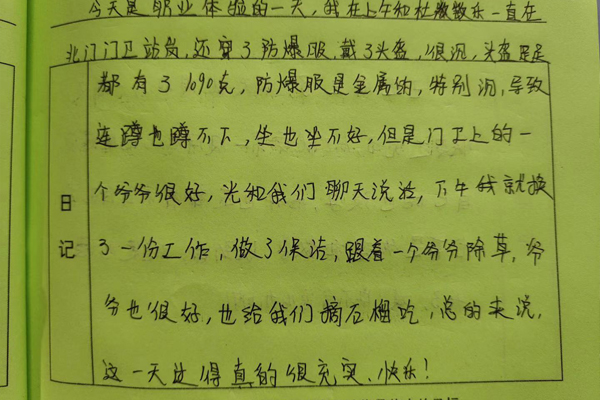 今天是职业体验的一天,我在上午和杜散散乐一直在
北门门卫站岗,还穿了防爆服,戴了头盔,很沉,头盔足足
都有了1090克,防爆服是金属的,特别沉,导致
连蹲也蹲不下,坐也坐不好,但是门卫上的一
个爷爷很好,光和我们聊天说话,下午我就换
了一份工作,做了保洁,跟着一个爷爷除草,爷
日记
爷也很好,也给我们摘石榴吃,总的来说,
这一天过得真的很充实、快乐!